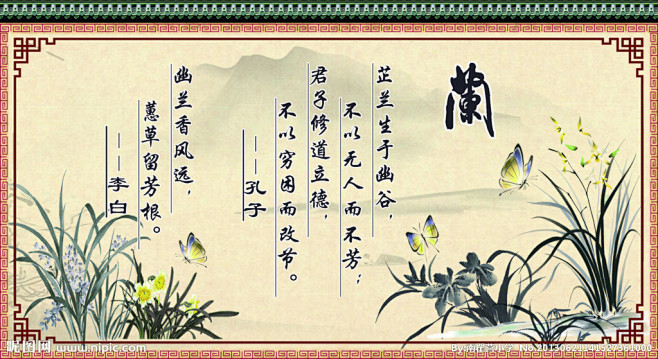 蘭
芷兰生于幽谷，
不以无人而不芳；
君子修道立德，
不以穷困而改节。
——孔子
幽兰香风远，
蕙草留芳根。
——李白
昵图网 www.nipic.com